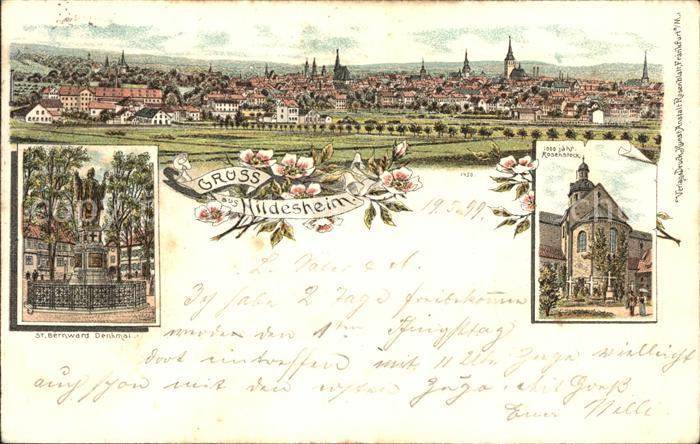 Verlag, Druck, Kunst-Anstalt Rosenblatt, Frankfurt a/M.
1000 jähr.
Rosenstock
GRUSS
aus
Hildesheim.
1920.
19.5.99.
St. Bernward Denkmal.
L. Vater & M.
Ich habe 2 Tage freibekommen
werde den 1ten Pfingsttag
dort eintreffen mit 11 Uhr Zuge vielleicht
auch schon mit den ersten Zuge. Mit Gruß
Euer Willi